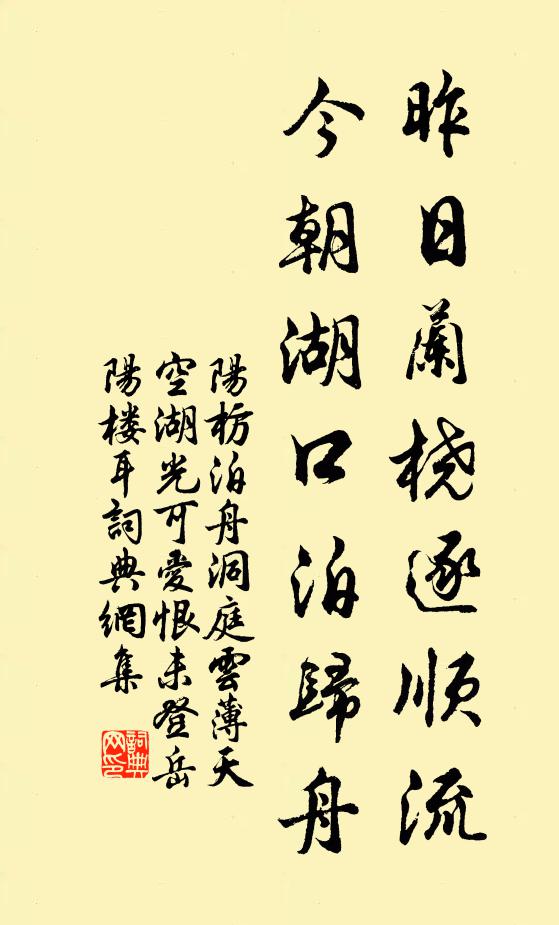 昨日蘭橈逐順流
今朝湖口泊歸舟
陽枋泊舟洞庭雲薄天
空湖光可愛恨未登岳
陽楼耳詞典網集
詞典
网印